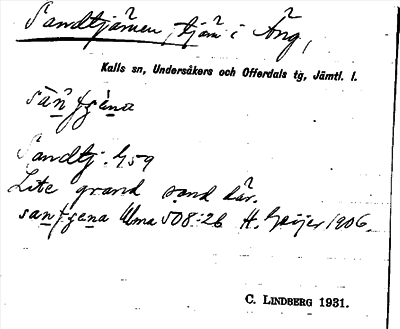 Sandtjärnen, tjärn i Äng,
Kalls sn, Undersåkers och Offerdals tg, Jämtl. l.
Sandtj. 459
Lite grand sand där.
Ulma 508:26 H. Geijer 1906.
C. LINDBERG 1931.